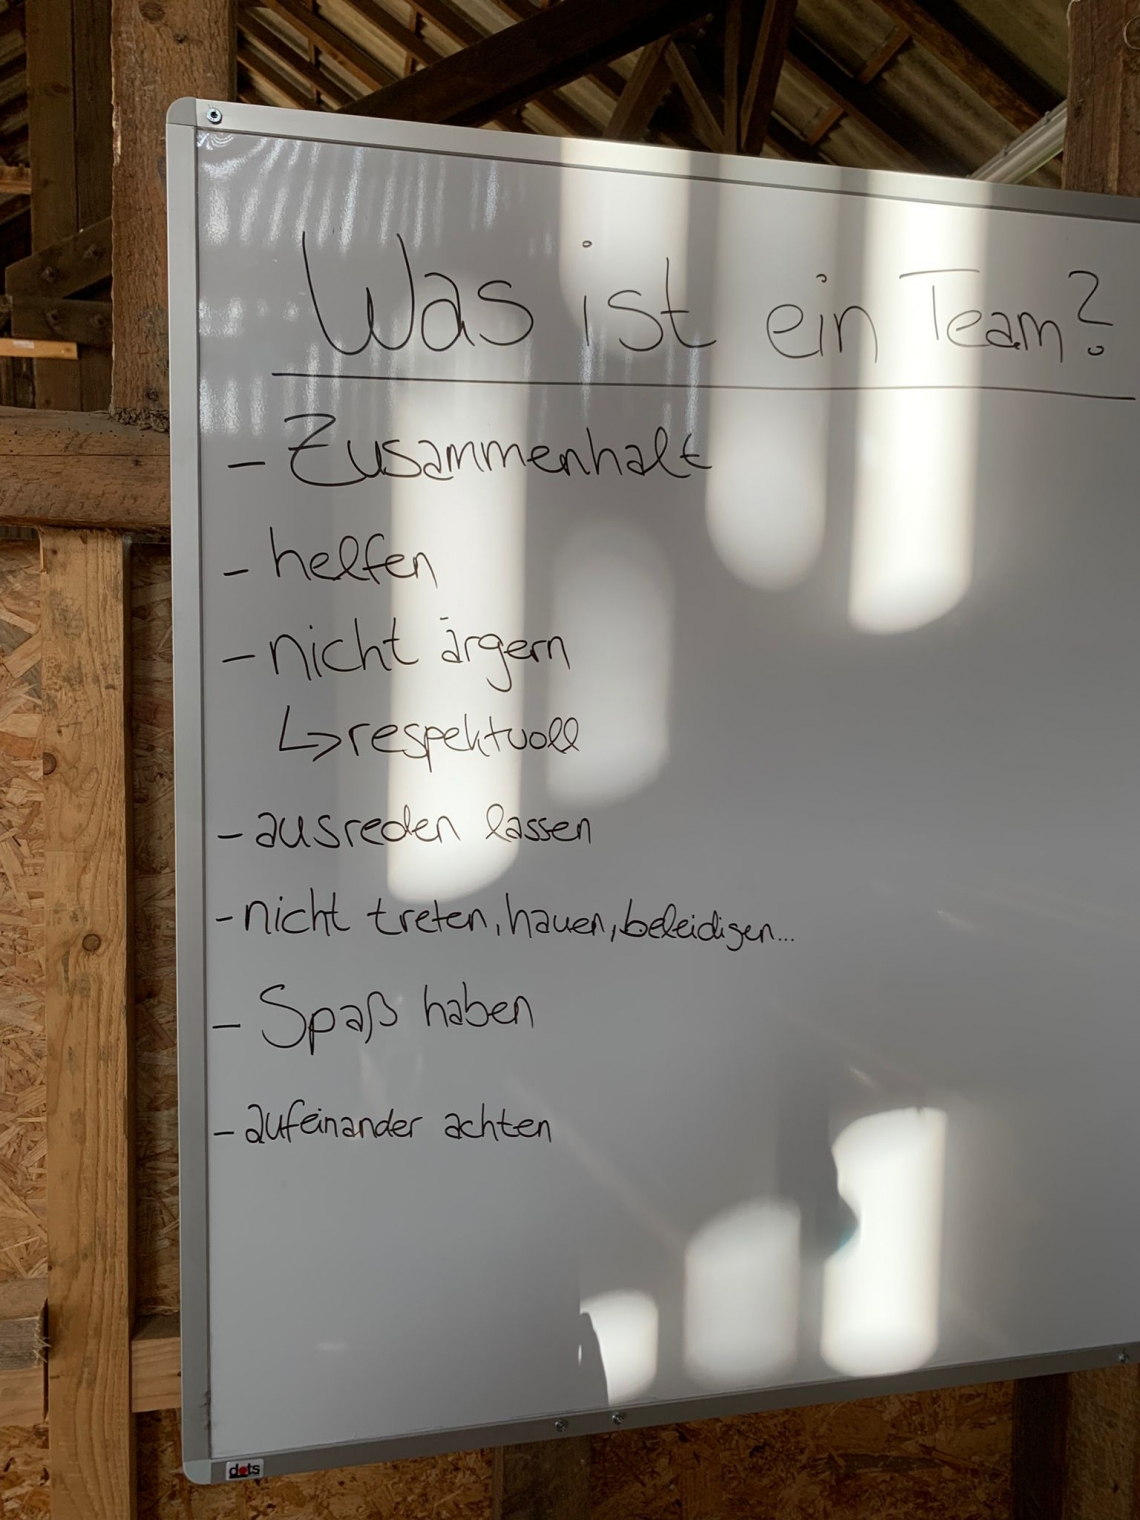 Was ist ein Team?
- Zusammenhalt
- helfen
- nicht ärgern
↳ respektvoll
- ausreden lassen
- nicht treten, hauen, beleidigen...
- Spaß haben
- aufeinander achten
dots